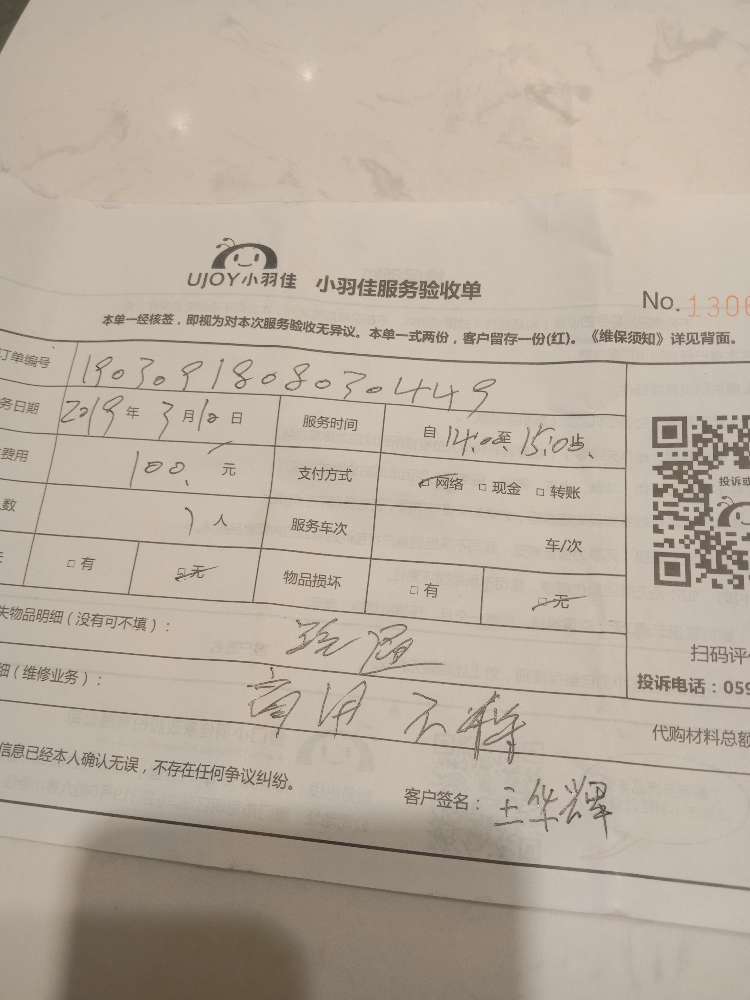 UJOY小羽佳 小羽佳服务验收单
No. 1306
本单一经核签，即视为对本次服务验收无异议。本单一式两份，客户留存一份(红)。《维保须知》详见背面。
订单编号 1903091808030449
务日期 2019年3月10日 服务时间 自14:00至15:00止
费用 100.元 支付方式 网络 现金 转账
人数 1人 服务车次 车/次
有 无 物品损坏 有 无
投诉或
失物品明细（没有可不填）：
扫码评
细（维修业务）：
投诉电话：059
代购材料总额
信息已经本人确认无误，不存在任何争议纠纷。
客户签名：王华辉